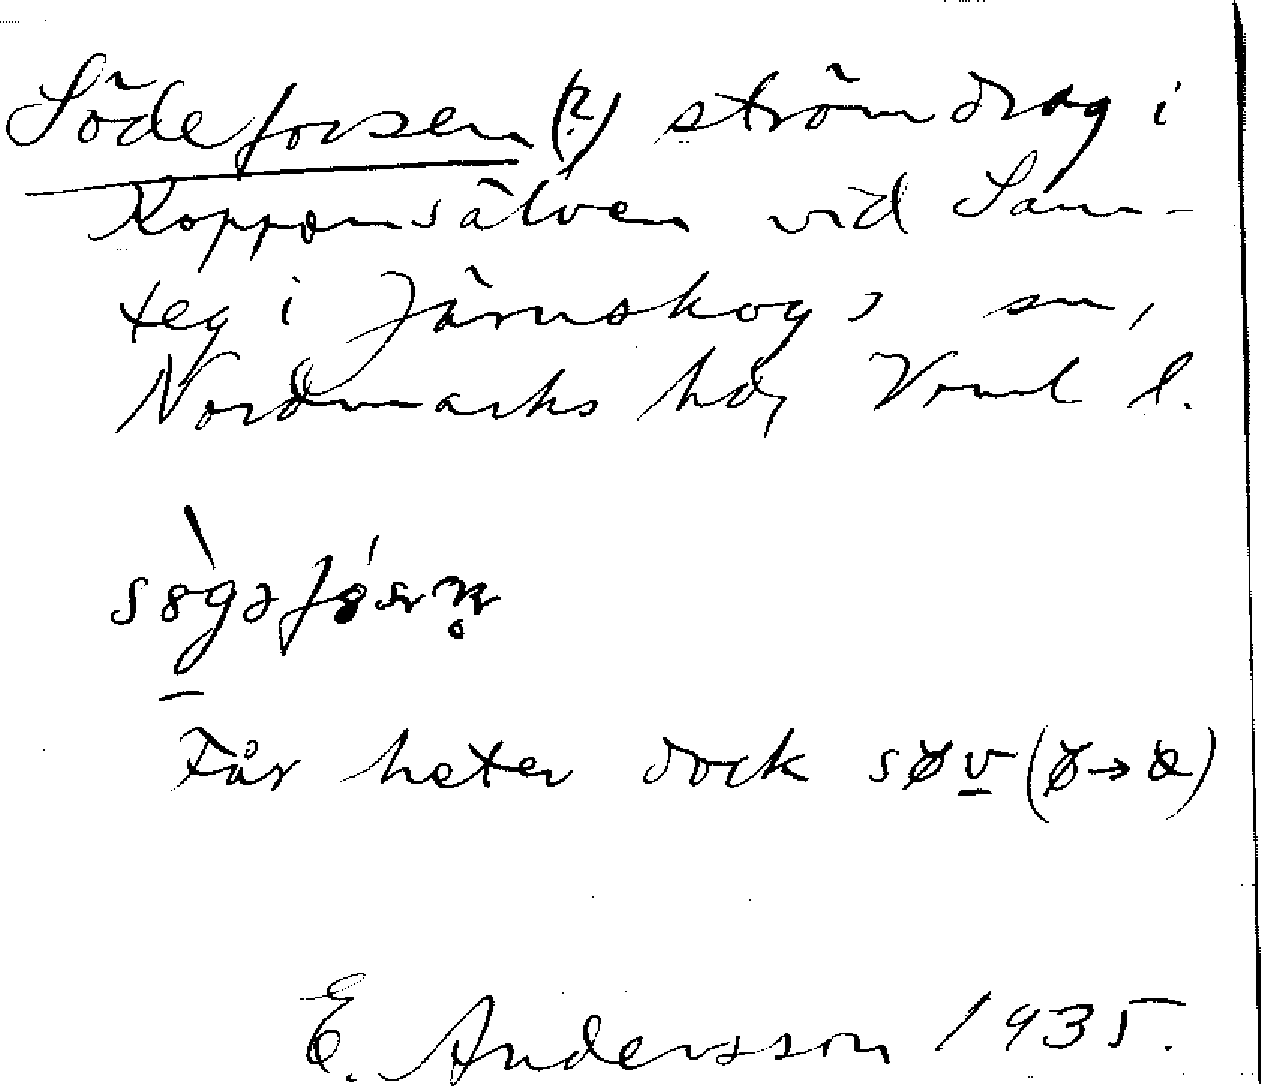 Södeforsen (?) strömdrag i
Koppomsälven vid Säm-
teg i Järnskogs sn,
Nordmarks hd, Vrml l.
Får heter dock
E. Andersson 1935.